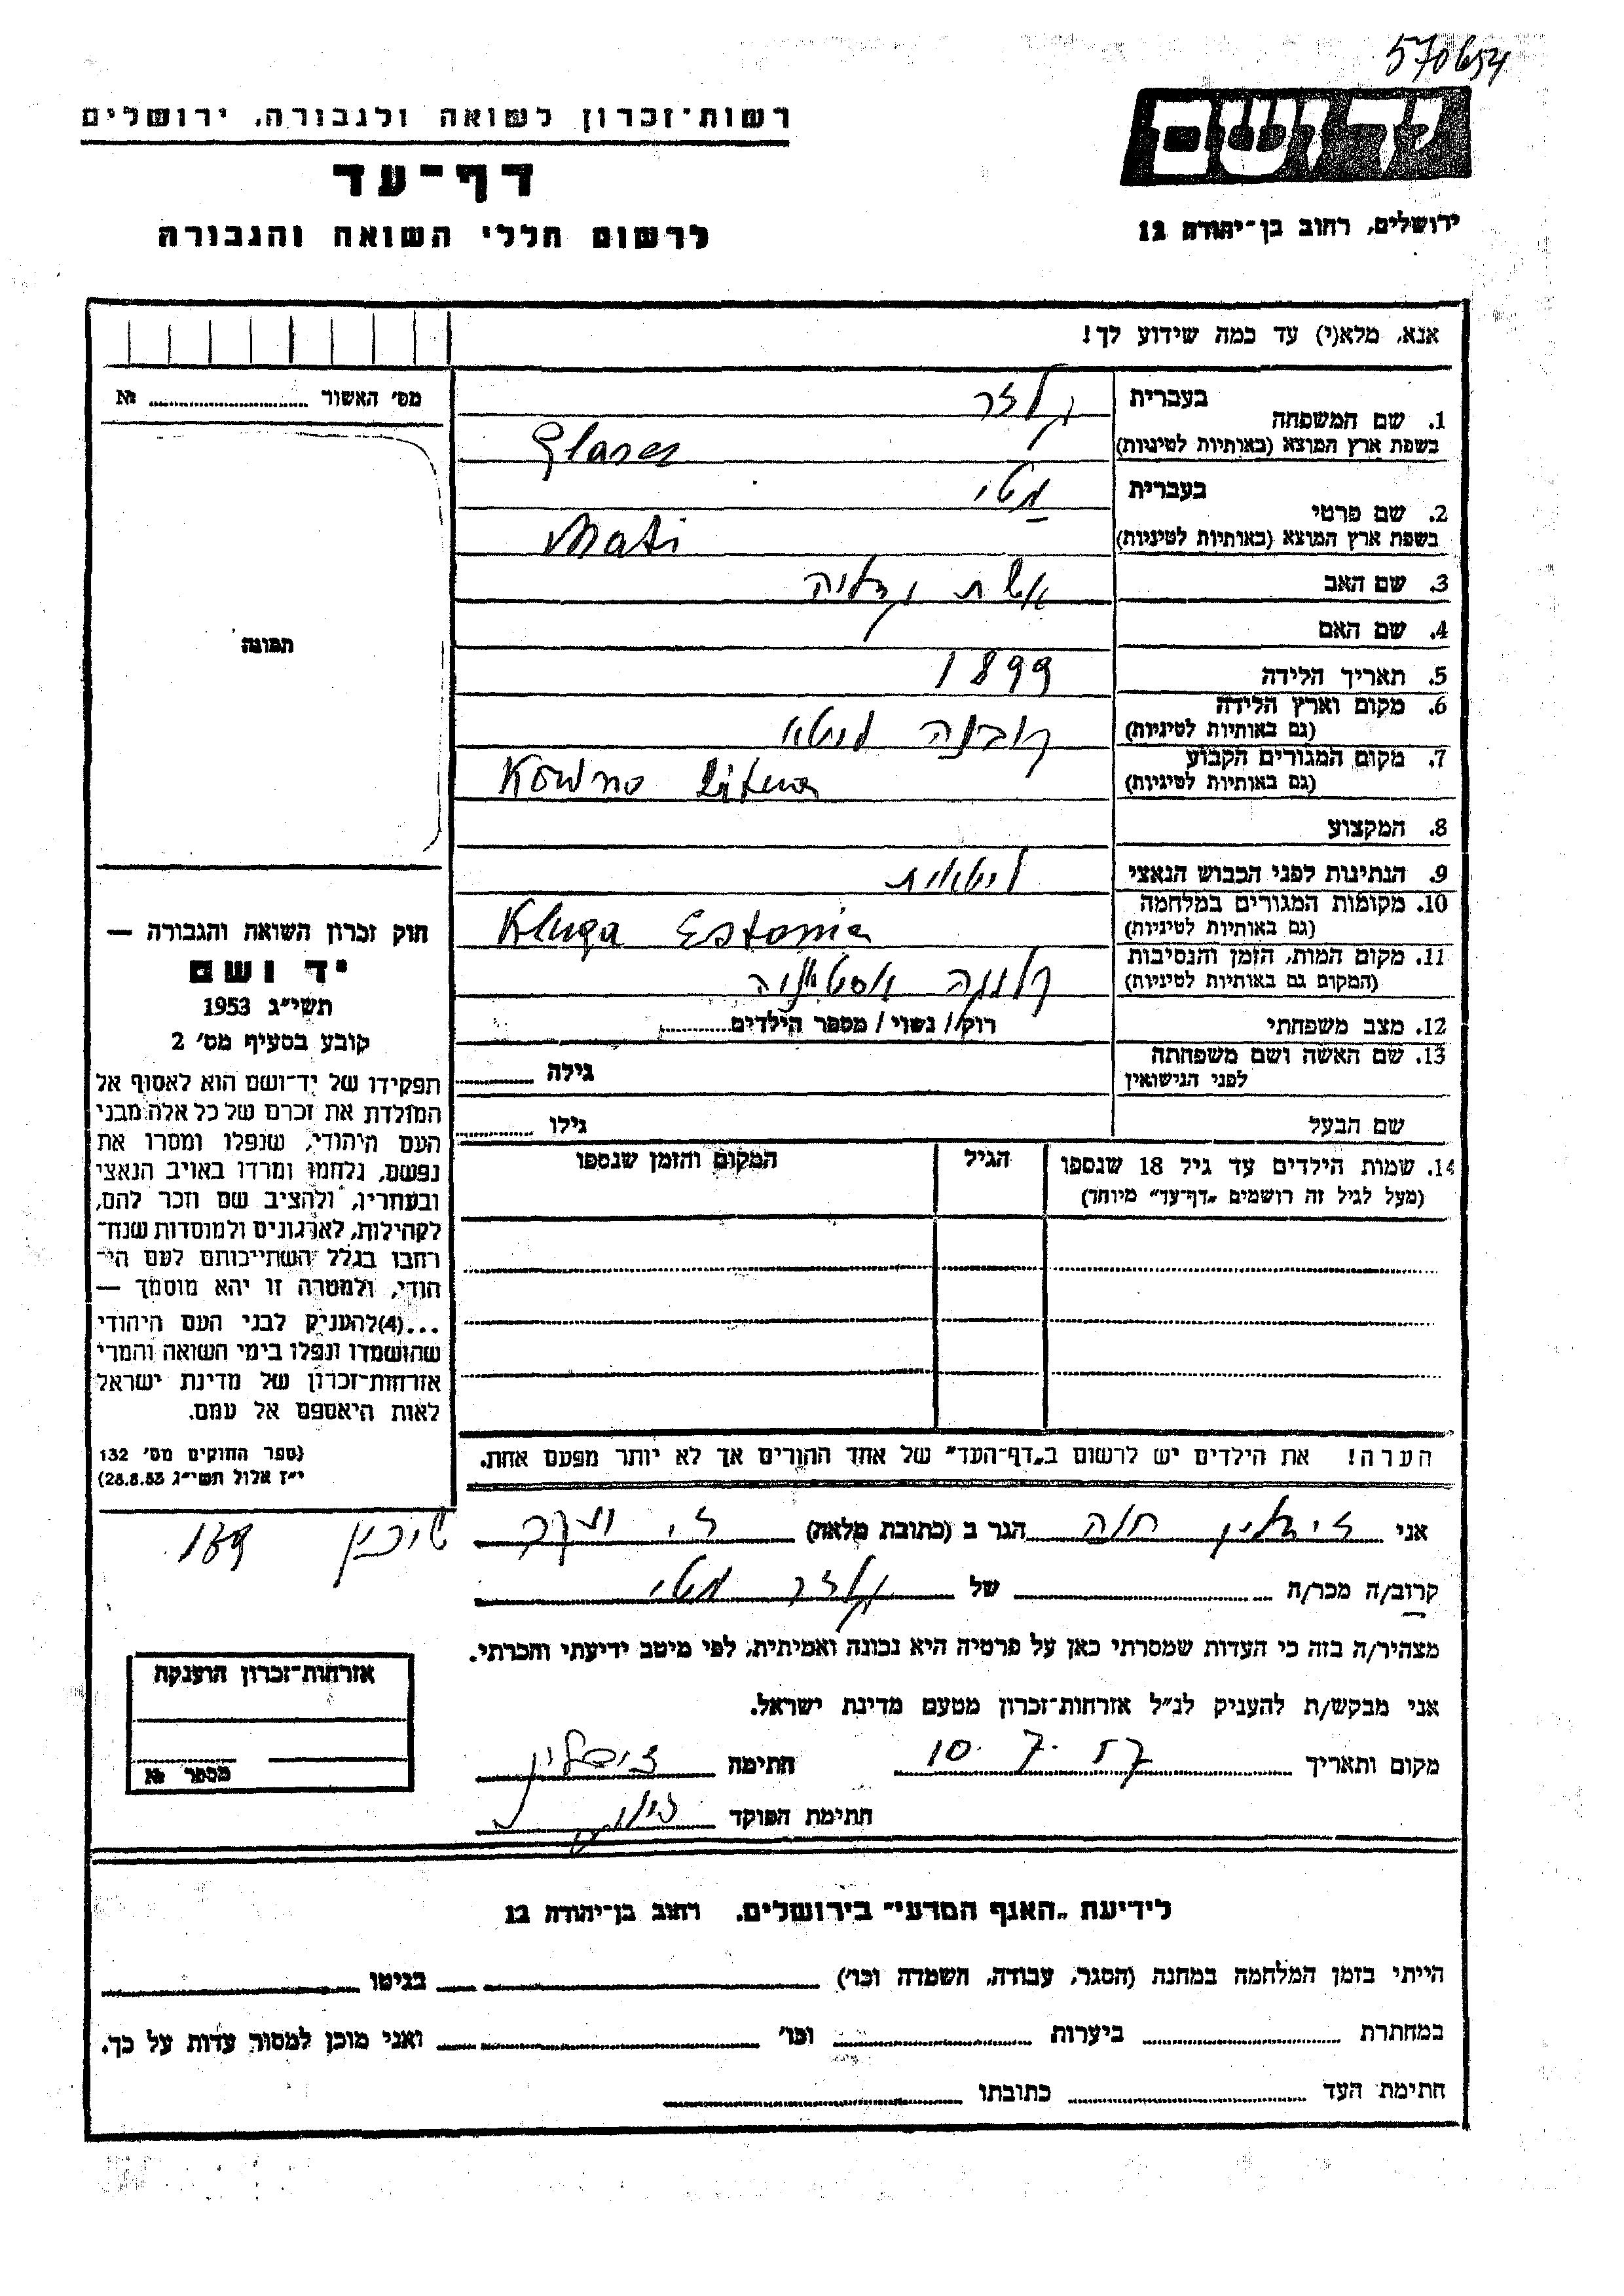 570654
יד ושם
ירושלים, רחוב בן־יהודה 12
רשות־זכרון לשואה ולגבורה, ירושלים
דף־עד
לרשום חללי השואה והגבורה
אנא, מלא(י) עד כמה שידוע לך!
מס׳ האשור № 
1. שם המשפחה
בעברית גלזר
בשפת ארץ המוצא (באותיות לטיניות) Glaser
2. שם פרטי
בעברית מטי
בשפת ארץ המוצא (באותיות לטיניות) Mati
3. שם האב אשת גדליה
4. שם האם
5. תאריך הלידה 1899
6. מקום וארץ הלידה (גם באותיות לטיניות) קובנה ליטא
7. מקום המגורים הקבוע (גם באותיות לטיניות) Kowno Litwa
8. המקצוע
9. הנתינות לפני הכבוש הנאצי ליטאית
10. מקומות המגורים במלחמה (גם באותיות לטיניות) Kluga Estonia
11. מקום המות, הזמן והנסיבות (המקום גם באותיות לטיניות) קלוגה אסטוניה
12. מצב משפחתי רוק/ נשוי/ מספר הילדים
13. שם האשה ושם משפחתה לפני הנישואין גילה
שם הבעל גילו
14. שמות הילדים עד גיל 18 שנספו הגיל המקום והזמן שנספו
(מעל לגיל זה רושמים „דף־עד״ מיוחד)
הערה! את הילדים יש לרשום ב„דף־העד״ של אחד ההורים אך לא יותר מפעם אחת.
תמונה
חוק זכרון השואה והגבורה —
יד ושם
תשי״ג 1953
קובע בסעיף מס׳ 2
תפקידו של יד־ושם הוא לאסוף אל
המולדת את זכרם של כל אלה מבני
העם היהודי, שנפלו ומסרו את
נפשם, נלחמו ומרדו באויב הנאצי
ובעוזריו, ולהציב שם וזכר להם,
לקהילות, לארגונים ולמוסדות שנח־
רבו בגלל השתייכותם לעם הי־
הודי, ולמטרה זו יהא מוסמך —
...(4)להעניק לבני העם היהודי
שהושמדו ונפלו בימי השואה והמרי
אזרחות־זכרון של מדינת ישראל
לאות היאספם אל עמם.
(ספר החוקים מס׳ 132
י״ז אלול תשי״ג 28.8.53)
אני חנה הגר ב (כתובת מלאה) שיכון 139
קרוב/ה מכר/ה של גלזר מטי
מצהיר/ה בזה כי העדות שמסרתי כאן על פרטיה היא נכונה ואמיתית, לפי מיטב ידיעתי והכרתי.
אני מבקש/ת להעניק לנ״ל אזרחות־זכרון מטעם מדינת ישראל.
מקום ותאריך 10.7.57 חתימה
חתימת הפוקד
אזרחות־זכרון הוענקה
מספר №
לידיעת „האגף המדעי״ בירושלים, רחוב בן־יהודה 12
הייתי בזמן המלחמה במחנה (הסגר, עבודה, השמדה וכו׳) בגיטו
במחתרת ביערות וכו׳ ואני מוכן למסור עדות על כך.
חתימת העד כתובתו